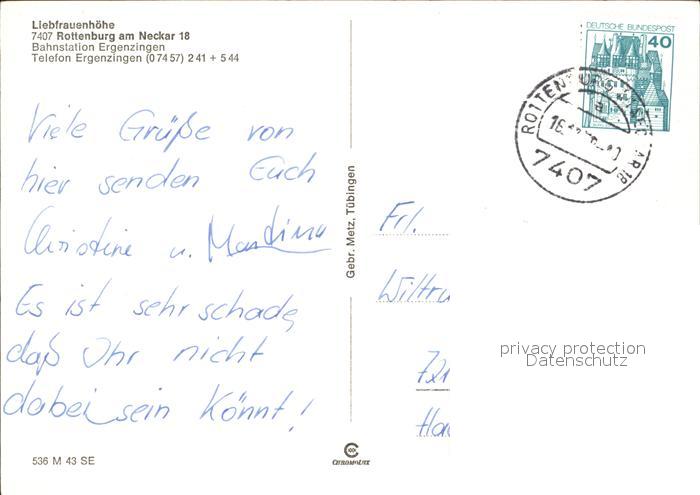 Liebfrauenhöhe
7407 Rottenburg am Neckar 18
Bahnstation Ergenzingen
Telefon Ergenzingen (0 74 57) 2 41 + 5 44
DEUTSCHE BUNDESPOST
40
ROTTENBURG NECKAR 18
a
7407
Viele Grüße von
hier senden Euch
Christine u. Martina
Es ist sehr schade,
daß Ihr nicht
dabei sein könnt!
Gebr. Metz, Tübingen
Frl.
Wiltru
721
privacy protection
Datenschutz
536 M 43 SE
CHROMOLUX